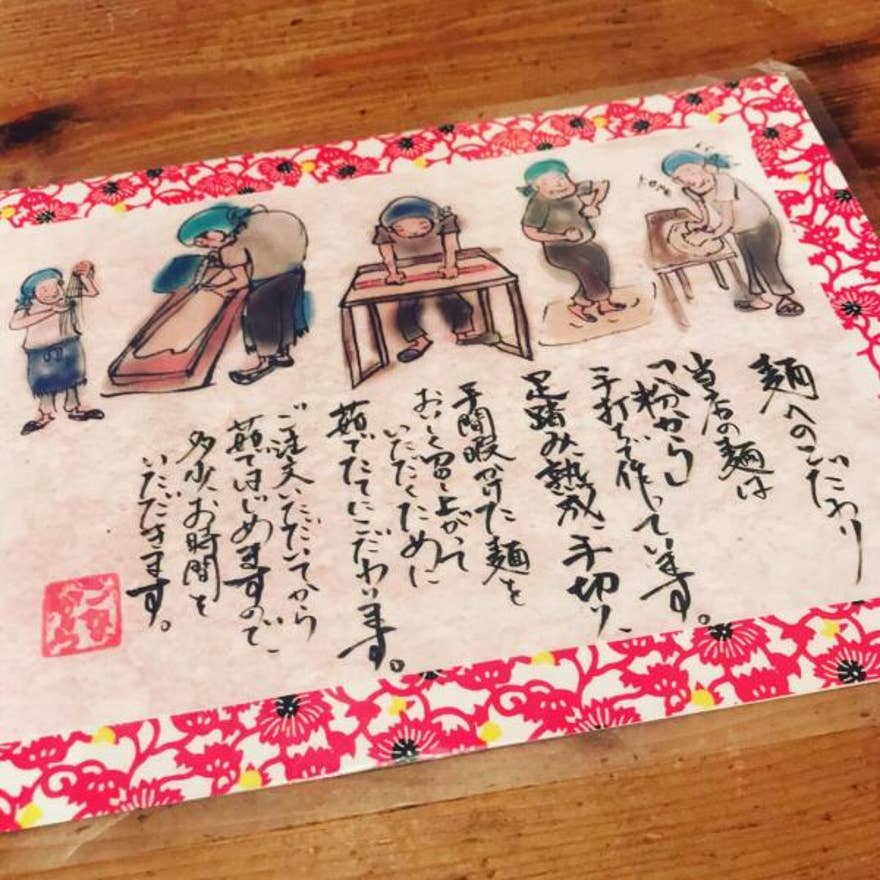 麺へのこだわり
当店の麺は
「粉から」
手打ちで作っています。
足踏み、熟成、手切り、
手間暇かけた麺を
おいしく召し上がって
いただくために
茹でたてにこだわります。
ご注文いただいてから
茹ではじめますので
多少、お時間を
いただきます。